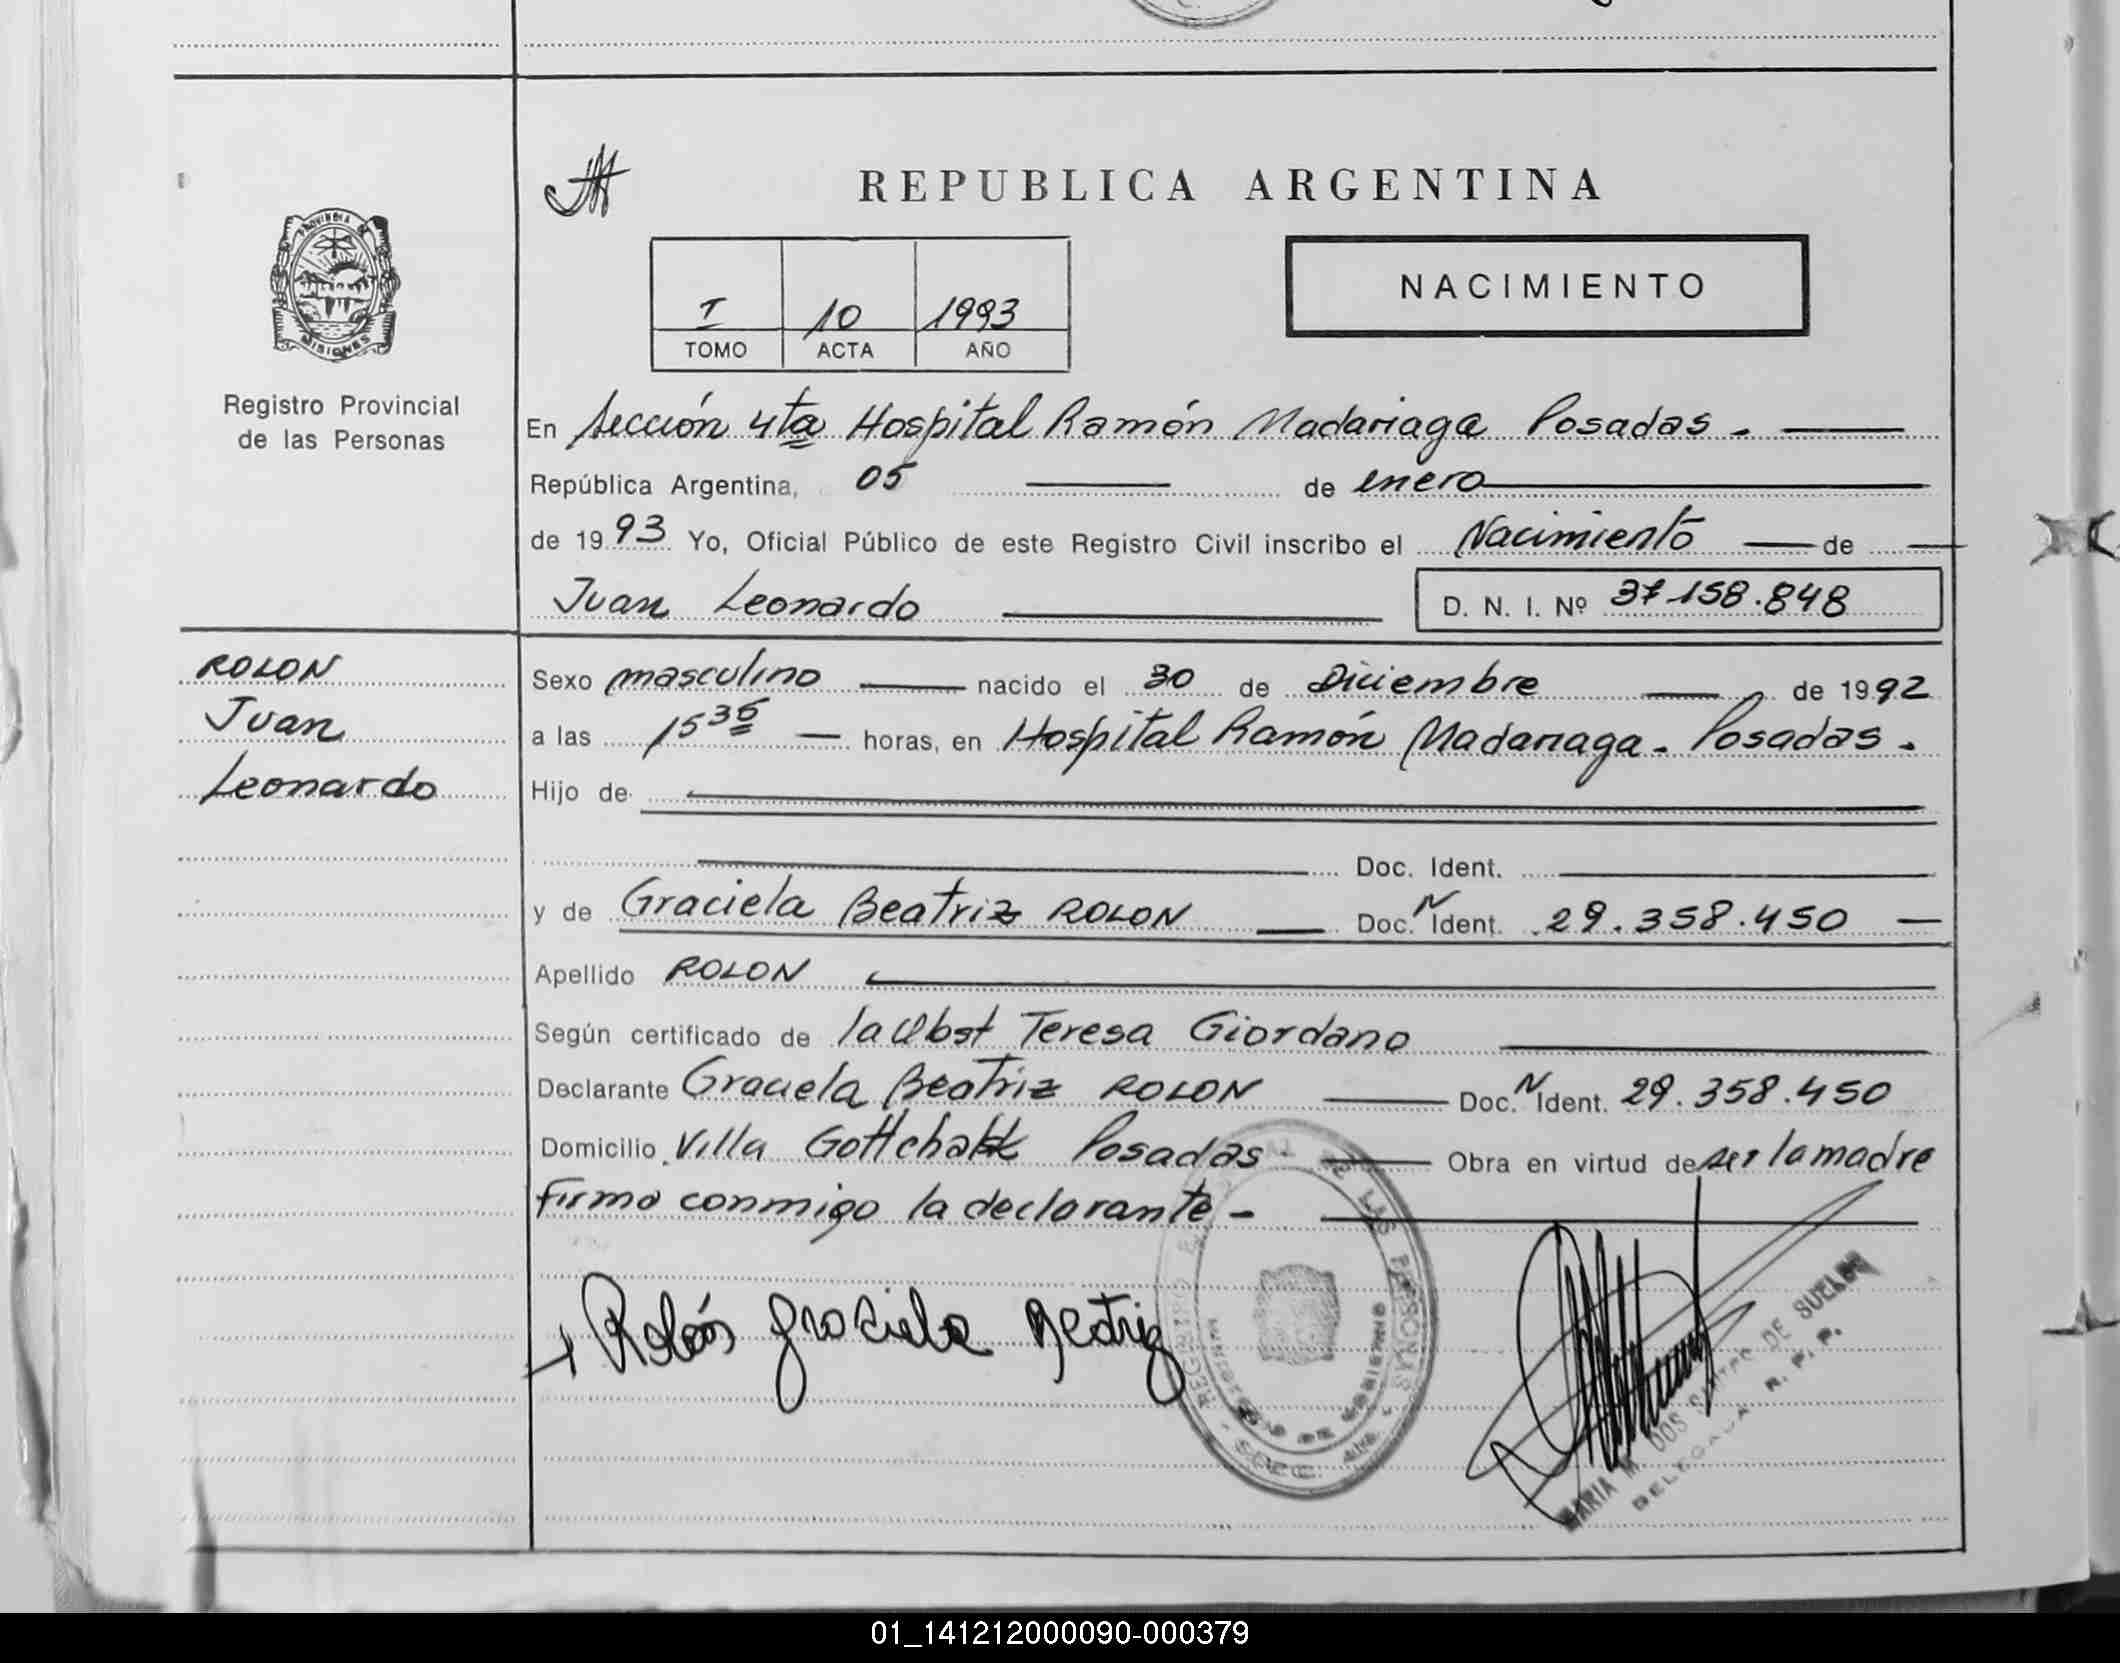 REPUBLICA ARGENTINA
PROVINCIA DE
MISIONES
I 10 1993
TOMO ACTA AÑO
NACIMIENTO
Registro Provincial
de las Personas
En Sección 4ta Hospital Ramón Madariaga Posadas.
República Argentina, 05 de enero
de 1993 Yo, Oficial Público de este Registro Civil inscribo el Nacimiento de
Juan Leonardo D. N. I. Nº 37.158.848
ROLON
Juan
Leonardo
Sexo masculino nacido el 30 de Diciembre de 1992
a las 15 35 horas, en Hospital Ramón Madariaga. Posadas.
Hijo de
Doc. Ident.
y de Graciela Beatriz ROLON Doc. N Ident. 29.358.450
Apellido ROLON
Según certificado de la Obst Teresa Giordano
Declarante Graciela Beatriz ROLON Doc. N Ident. 29.358.450
Domicilio Villa Posadas Obra en virtud de ser la madre
Firma conmigo la declarante -
Rolón Graciela Beatriz
REGISTRO DE LAS PERSONAS
MINISTERIO DE GOBIERNO
MARIA M. DOS SANTOS DE SUELDO
DELEGADA R. P. P.
01_141212000090-000379